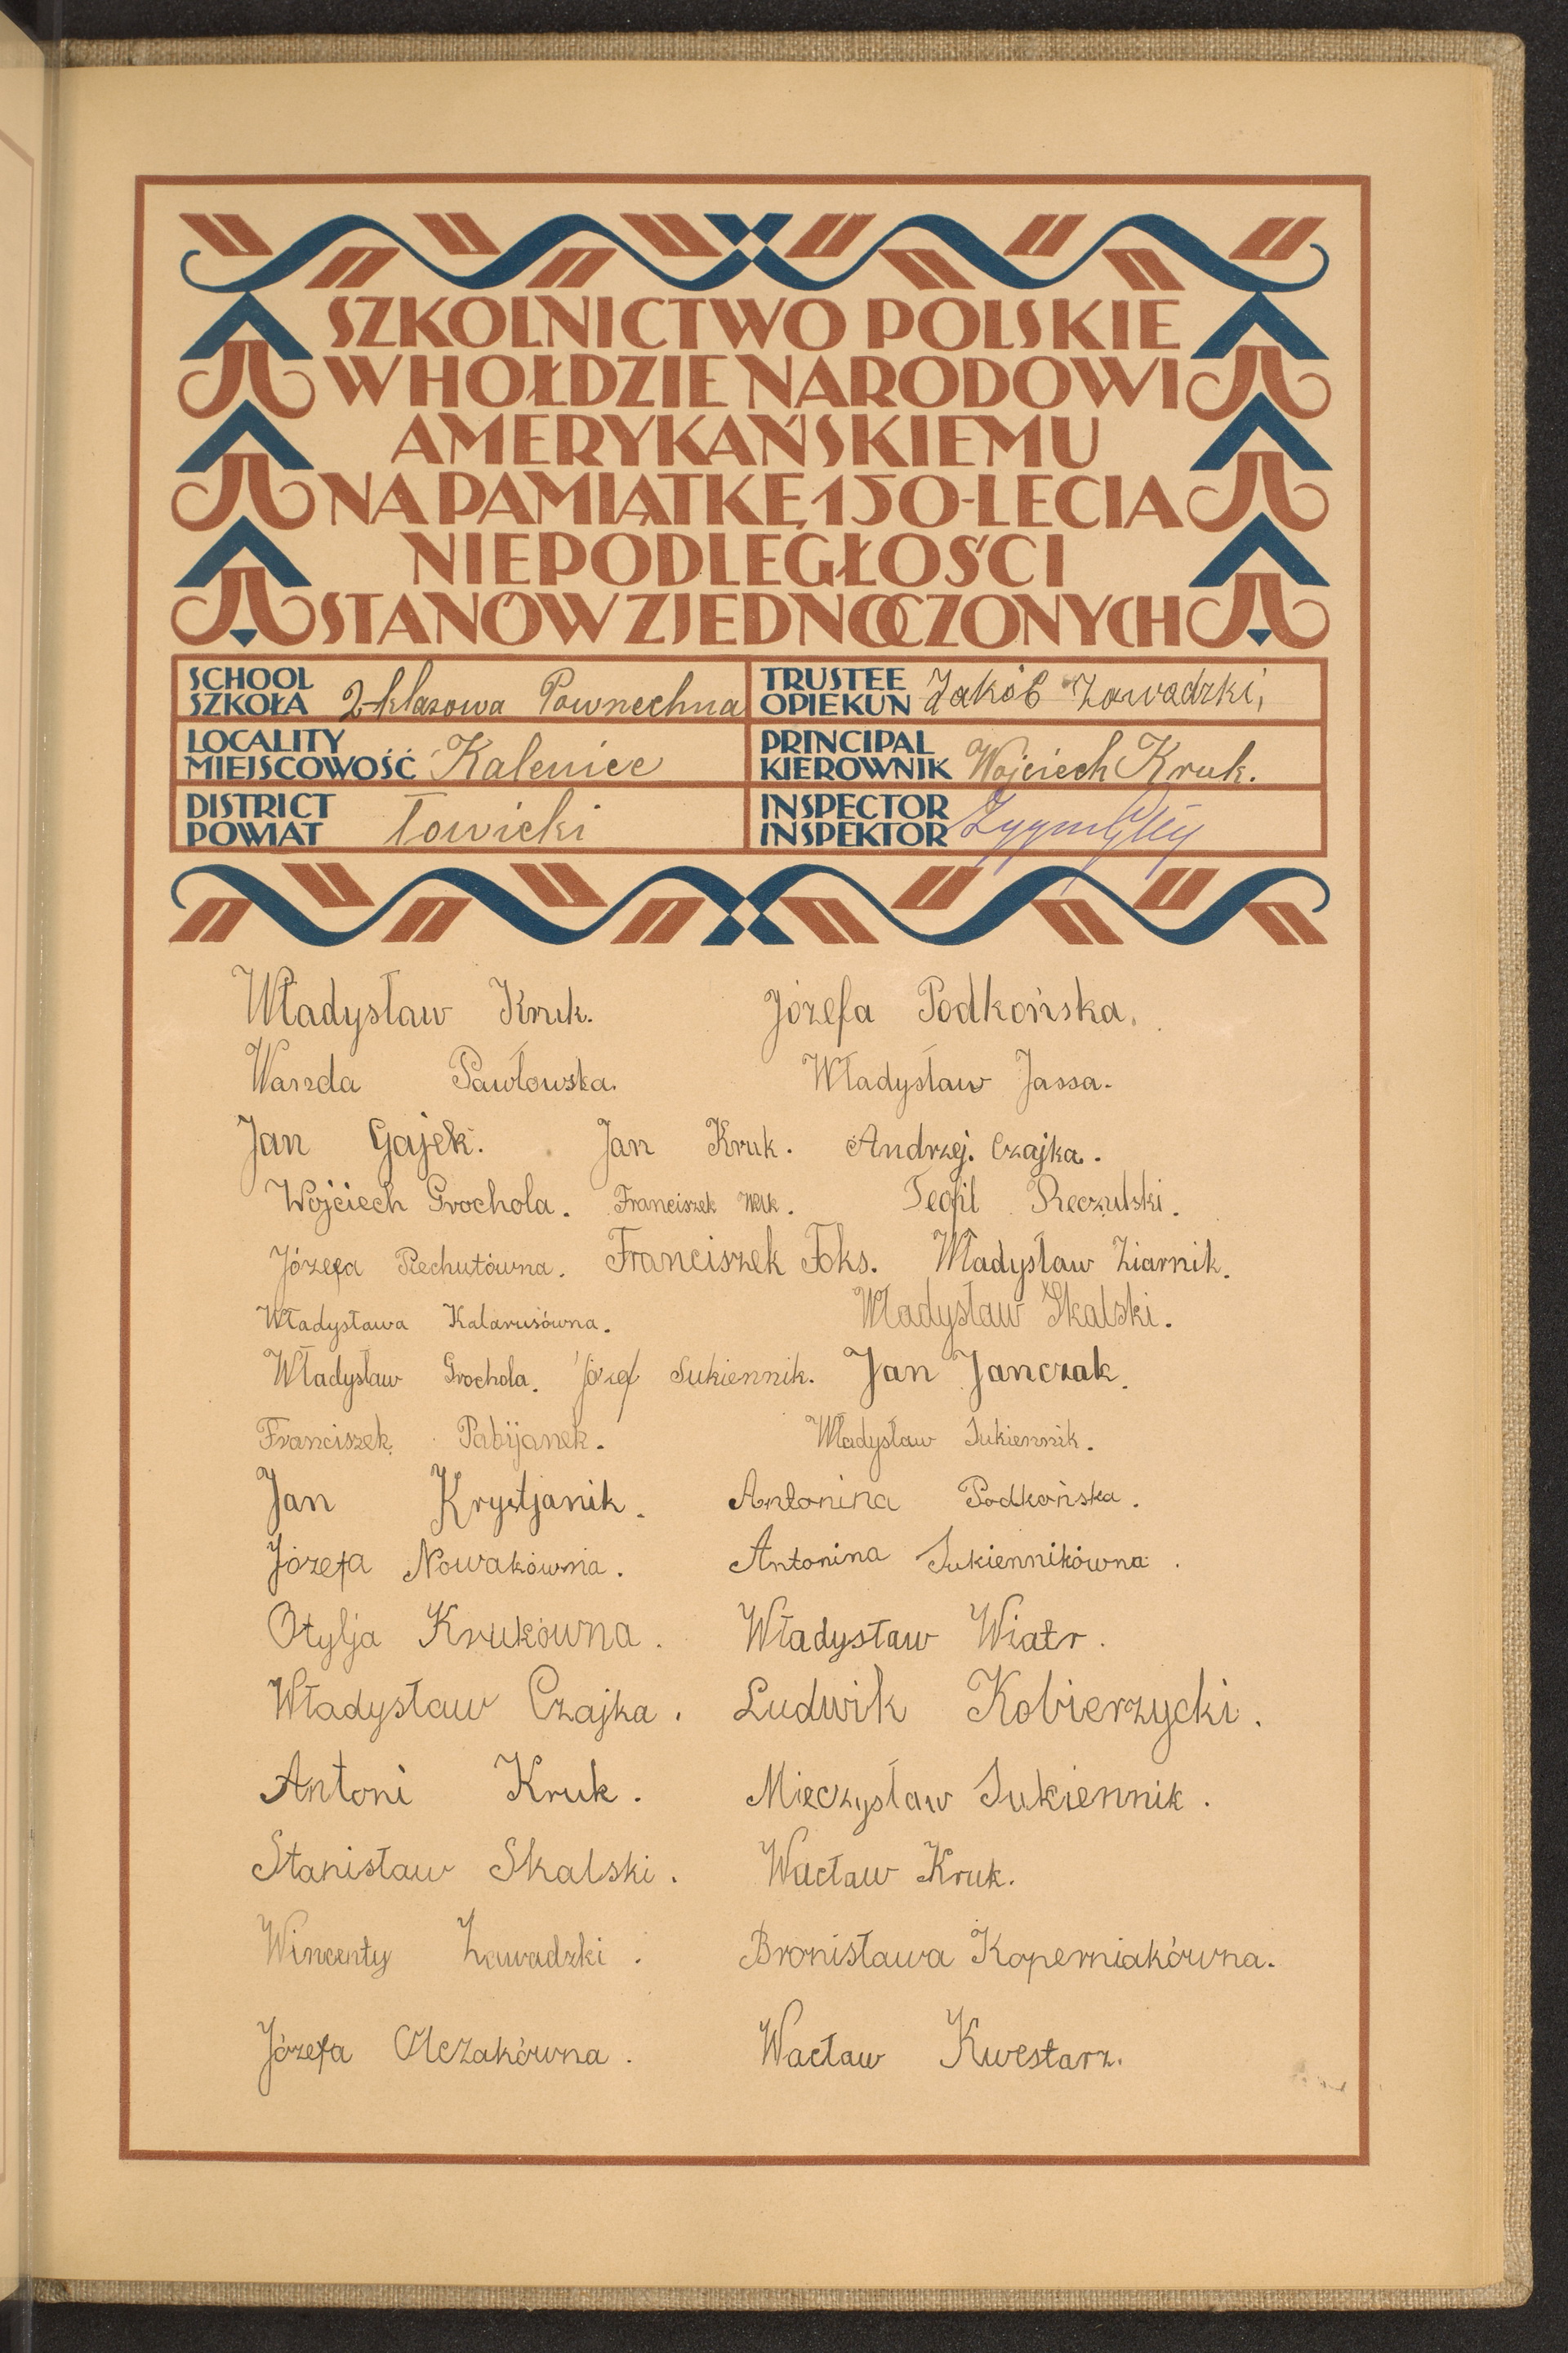 SZKOLNICTWO POLSKIE
W HOŁDZIE NARODOWI
AMERYKAŃSKIEMU
NA PAMIĄTKĘ 150-LECIA
NIEPODLEGŁOŚCI
STANÓW ZJEDNOCZONYCH
SCHOOL SZKOŁA 2-klasowa Powszechna TRUSTEE OPIEKUN Jakób Zawadzki,
LOCALITY MIEJSCOWOŚĆ Kalenice PRINCIPAL KIEROWNIK Wojciech Kruk.
DISTRICT POWIAT Łowicki INSPECTOR INSPEKTOR
Władysław Kruk. Józefa Podkońska.
Wanda Pawłowska. Władysław Jassa.
Jan Gajek. Jan Kruk. Andrzej Czajka.
Wojciech Grochola. Franciszek Wilk. Teofil Reczulski.
Józefa Piechutówna. Franciszek Foks. Władysław Ziarnik.
Władysława Kalarusówna. Władysław Skalski.
Władysław Grochola. Józef Sukiennik. Jan Janczak.
Franciszek Pabijanek. Władysław Sukiennik.
Jan Krystjanik. Antonina Podkońska.
Józefa Nowakówna. Antonina Sukiennikówna.
Otylja Krukówna. Władysław Wiatr.
Władysław Czajka. Ludwik Kobierzycki.
Antoni Kruk. Mieczysław Sukiennik.
Stanisław Skalski. Wacław Kruk.
Wincenty Zawadzki. Bronisława Koperniakówna.
Józefa Olczakówna. Wacław Kwestarz.